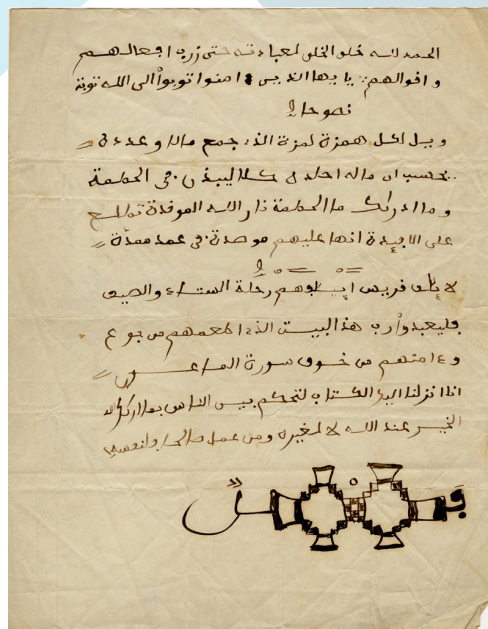 الحمد لله خلق الخلق لعبادته حتى زرب افعالهم
و افوالهم يايها الذين ءامنوا توبوا الى الله توبة
نصوحا
ويل لكل همزة لمزة الذ جمع مالا و عدده
يحسب ان ماله اخلده كلا لينبذن في الحطمة
و ما ادريك ما الحطمة نار الله الموقدة تطلع
على الافيدة انها عليهم موصدة في عمد ممدة
لا يلف فريش هم رحلة الشتاء والصيف
فليعبدوا رب هذا البيت الذ اطعمهم من جوع
و ءامنهم من خوف سورة الماعون
انا انزلنا اليك الكتاب لتحكم بين الناس بما
الخير عند الله لا لغيره ومن عمل صالحا